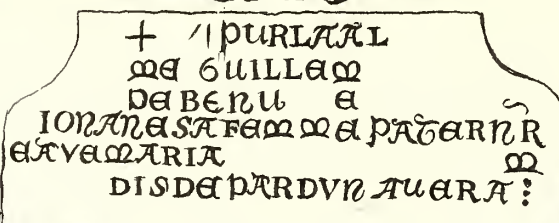 + PURLAAL
ME GUILLEM
DE BENU E
IONANE SA FEMME PATERNR
E AVE MARIA M
DIS DE PARDVN AUERA